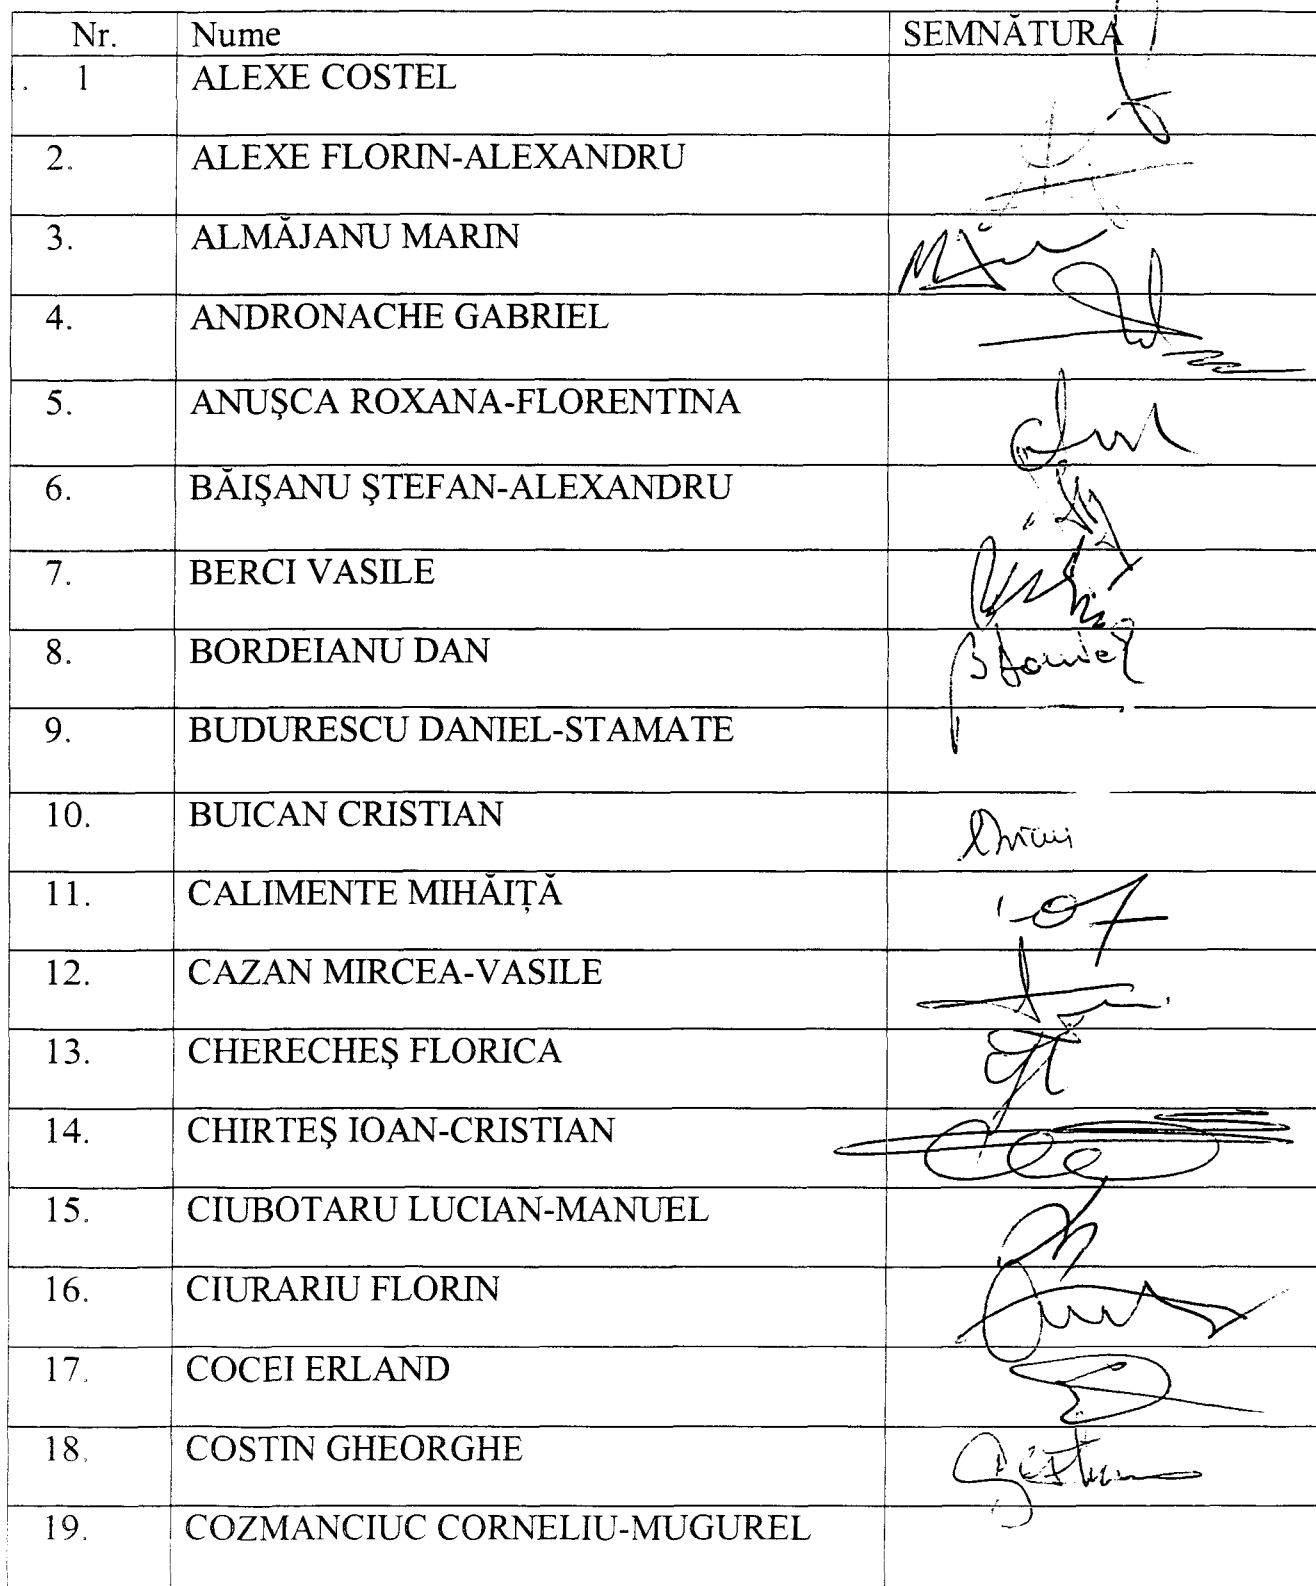 Nr. Nume SEMNĂTURA
1 ALEXE COSTEL
2. ALEXE FLORIN-ALEXANDRU
3. ALMĂJANU MARIN
4. ANDRONACHE GABRIEL
5. ANUŞCA ROXANA-FLORENTINA
6. BĂIŞANU ŞTEFAN-ALEXANDRU
7. BERCI VASILE
8. BORDEIANU DAN
9. BUDURESCU DANIEL-STAMATE
10. BUICAN CRISTIAN
11. CALIMENTE MIHĂIŢĂ
12. CAZAN MIRCEA-VASILE
13. CHERECHEŞ FLORICA
14. CHIRTEŞ IOAN-CRISTIAN
15. CIUBOTARU LUCIAN-MANUEL
16. CIURARIU FLORIN
17. COCEI ERLAND
18. COSTIN GHEORGHE
19. COZMANCIUC CORNELIU-MUGUREL